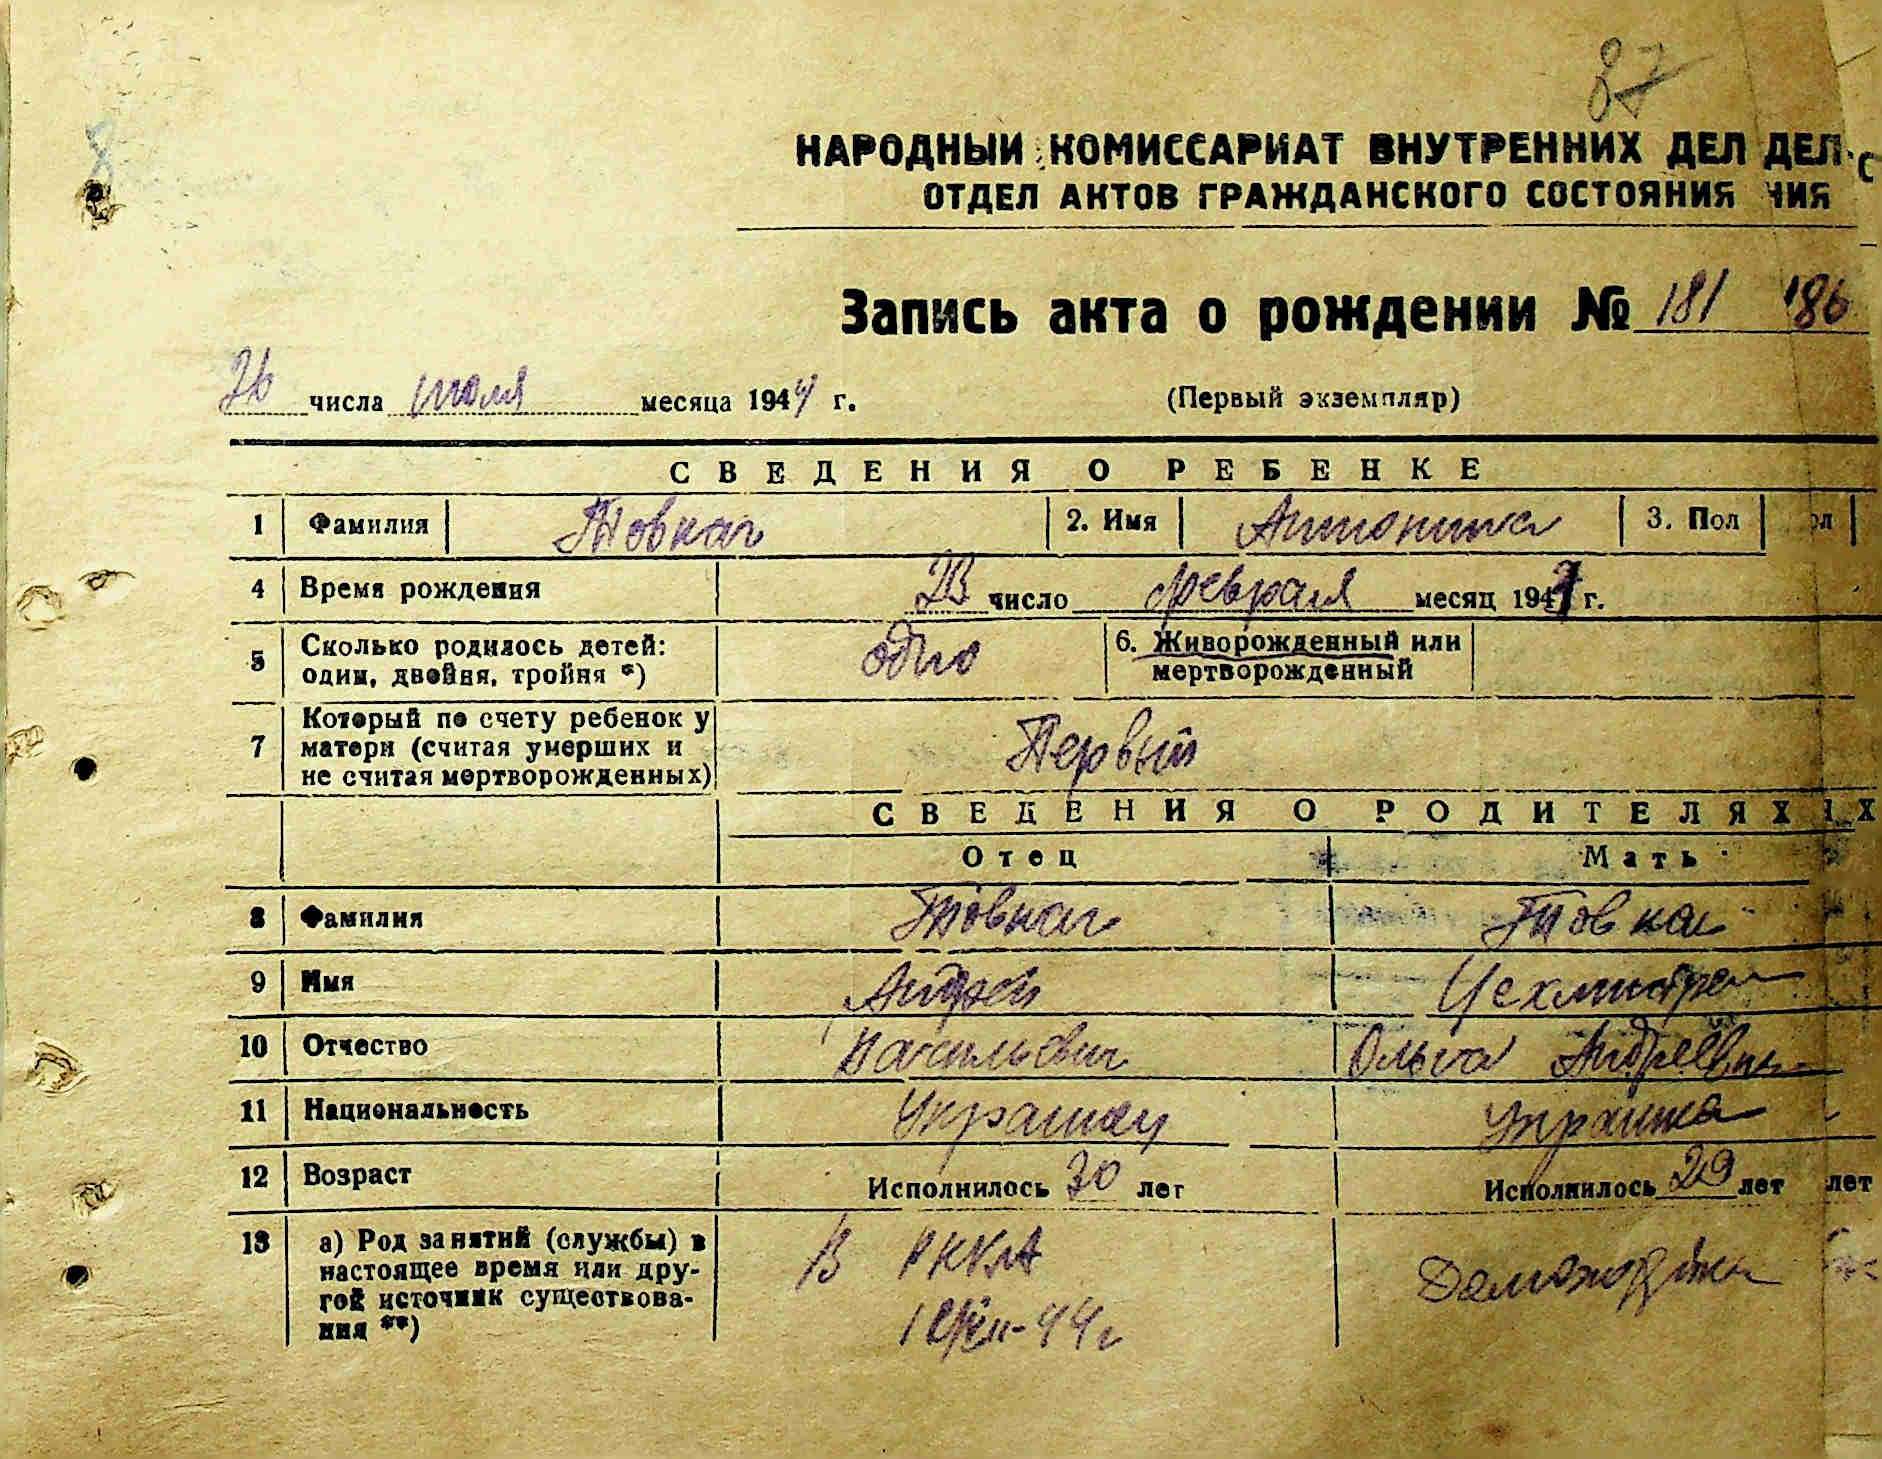 87
НАРОДНЫЙ КОМИССАРИАТ ВНУТРЕННИХ ДЕЛ ДЕЛ С
ОТДЕЛ АКТОВ ГРАЖДАНСКОГО СОСТОЯНИЯ НИЯ
Запись акта о рождении № 181 186
26 числа июля месяца 1944 г. (Первый экземпляр)
СВЕДЕНИЯ О РЕБЕНКЕ
1 Фамилия Товкач 2. Имя Антонина 3. Пол ол
4 Время рождения 23 число февраля месяц 194 г.
5 Сколько родилось детей: одно 6. Живорожденный или
один, двойня, тройня *) мертворожденный
7 Который по счету ребенок у
матери (считая умерших и Первый
не считая мертворожденных)
СВЕДЕНИЯ О РОДИТЕЛЯХ ЯХ
Отец Мать
8 Фамилия Товкач Товкач
9 Имя Андрей
10 Отчество Васильевич Ольга Андреевна
11 Национальность Украинец Украинка
12 Возраст Исполнилось 30 лет Исполнилось 29 лет лет
13 а) Род занятий (службы) в В РККА Домохозяйка
настоящее время или дру-
гой источник существова-
ния **)